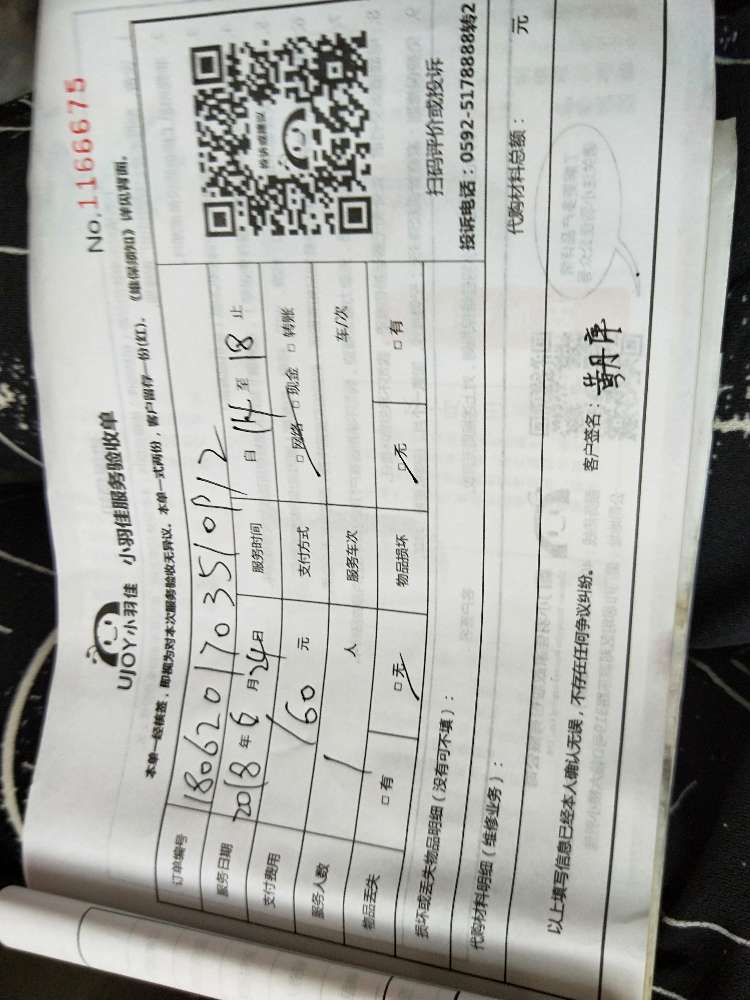 UJOY小羽佳 小羽佳服务验收单
No.1166675
本单一经核签，即视为对本次服务验收无异议。本单一式两份，客户留存一份(红)。《维保须知》详见背面。
订单编号 1806201703510912
服务日期 2018年6月24日 服务时间 自14至18止
支付费用 160元 支付方式 □网络 □现金 □转账
服务人数 1人 服务车次 车/次
物品丢失 □有 □无 物品损坏 □无 □有
投诉或建议
扫码评价或投诉
投诉电话：0592-5178888转2
损坏或丢失物品明细（没有可不填）：
代购材料明细（维修业务）： 代购材料总额： 元
以上填写信息已经本人确认无误，不存在任何争议纠纷。 客户签名：